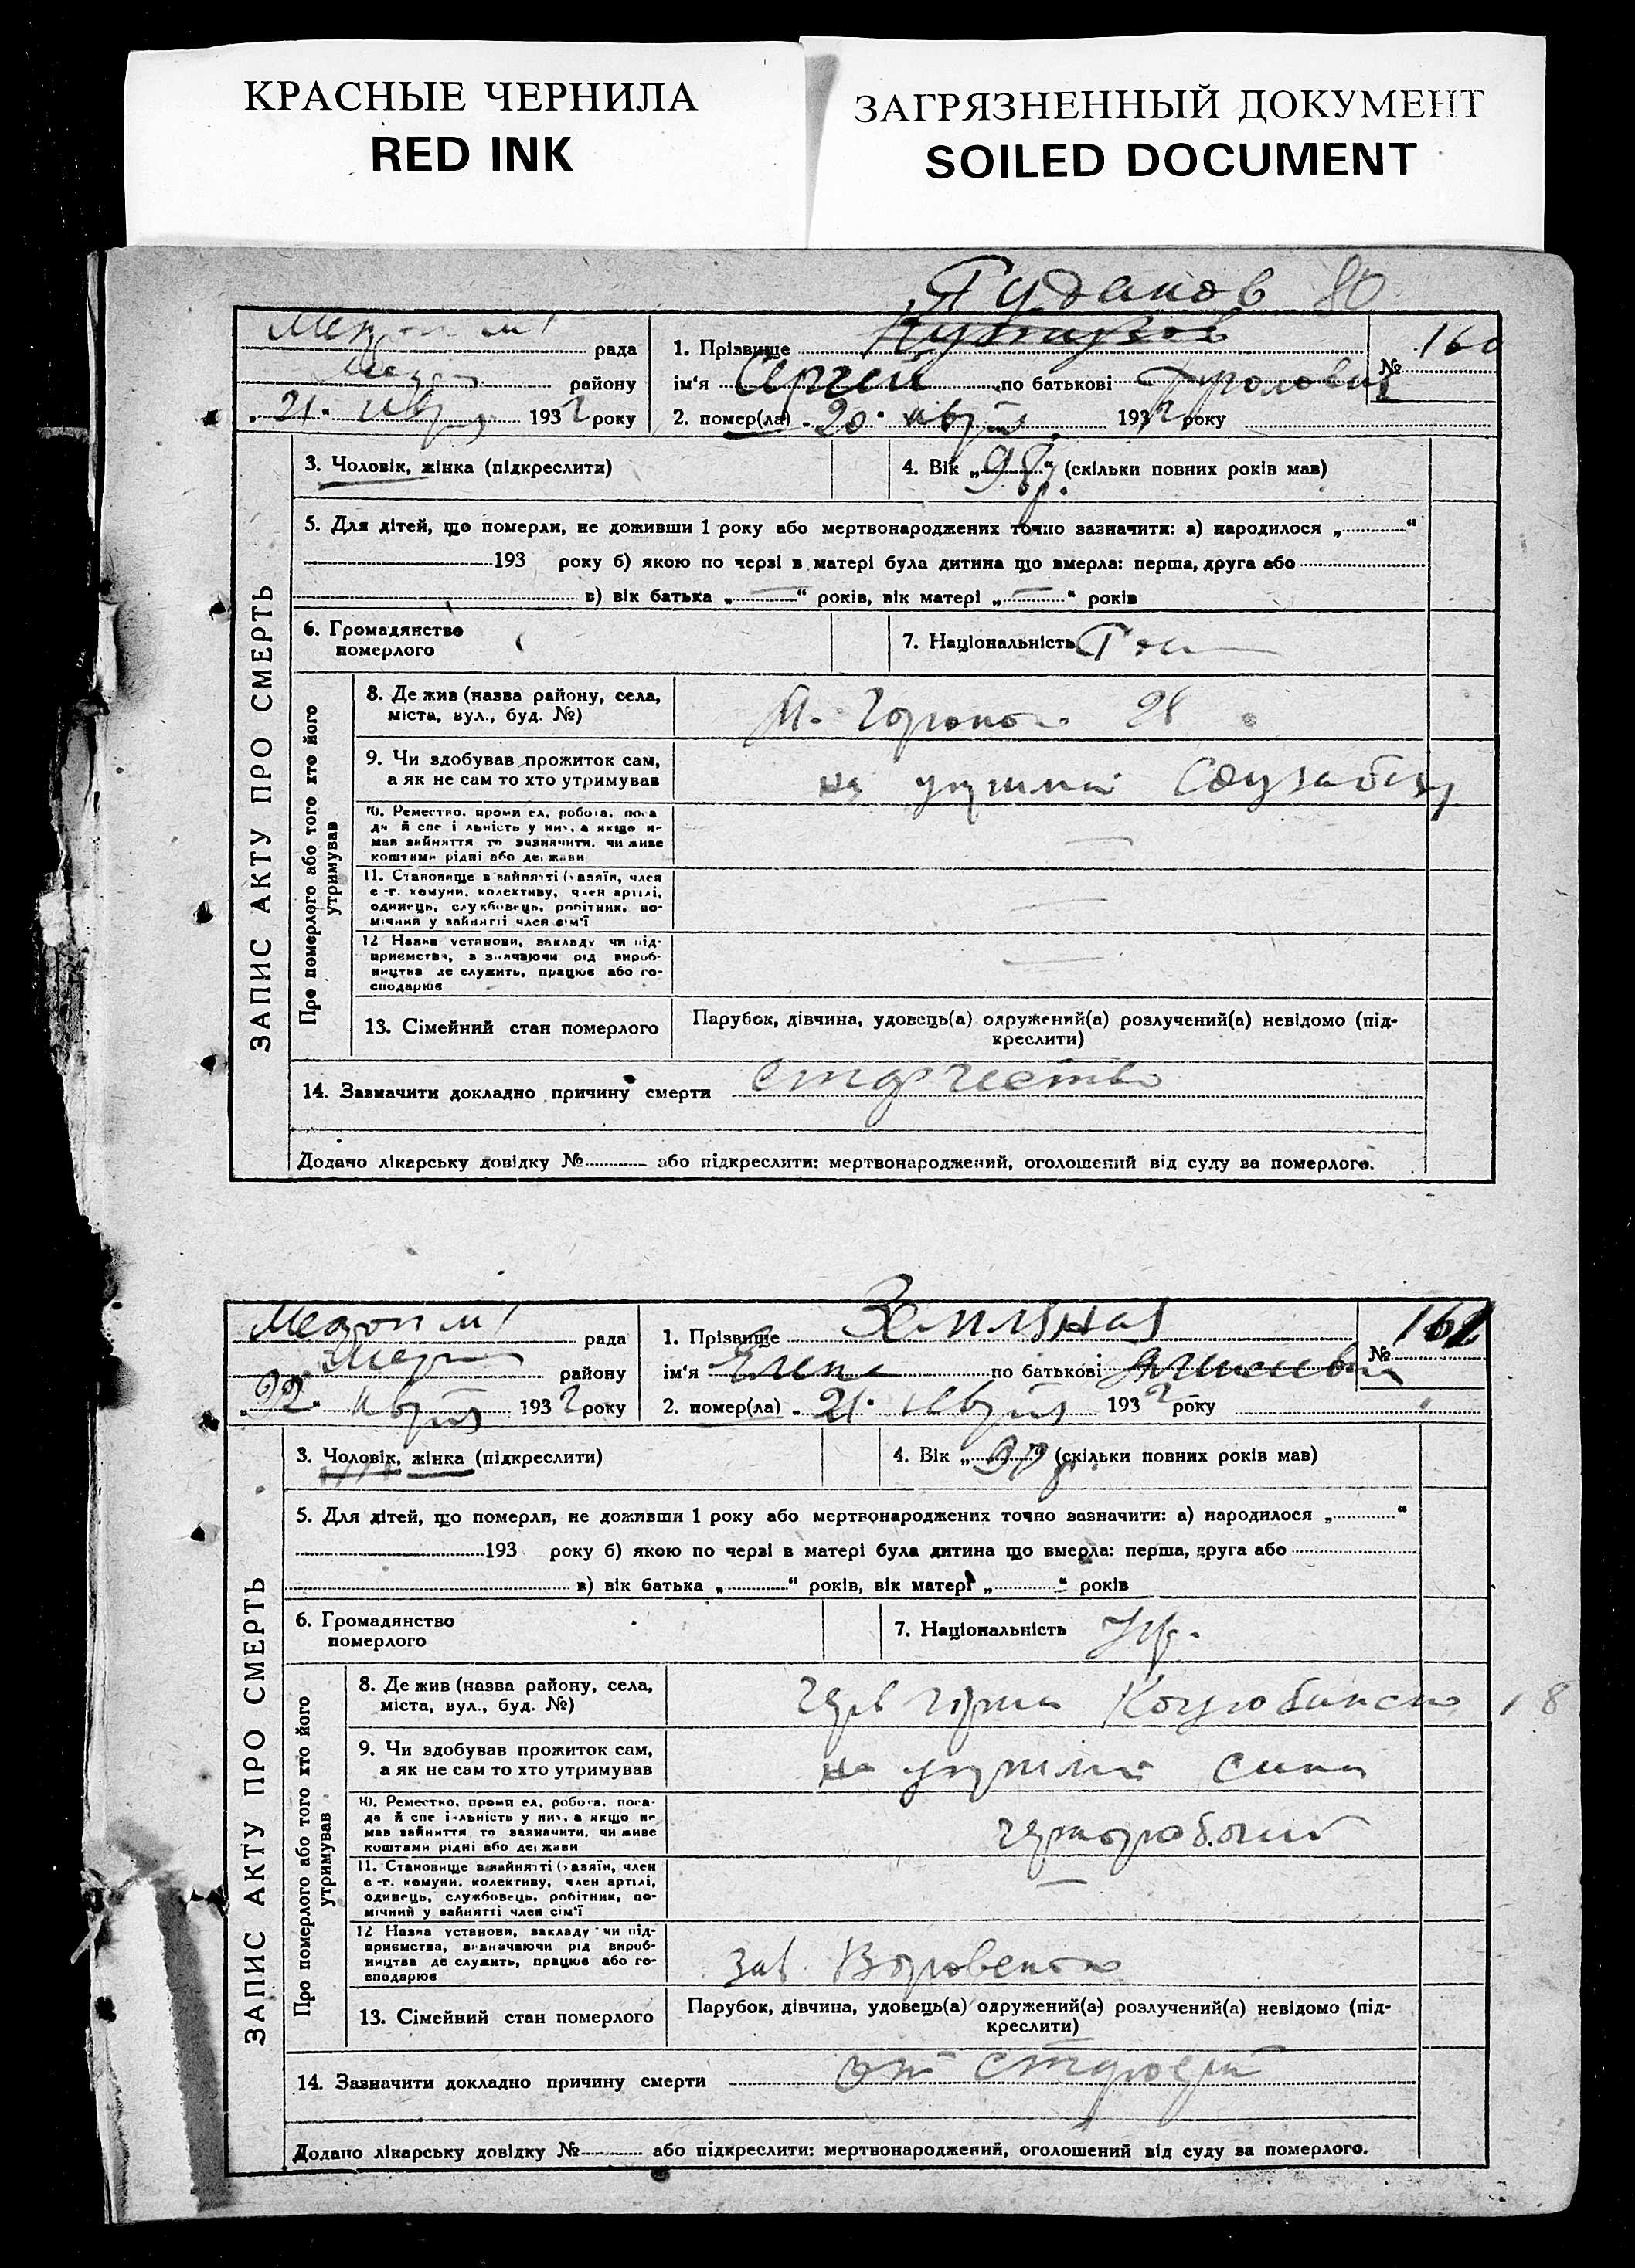 КРАСНЫЕ ЧЕРНИЛА
RED INK
ЗАГРЯЗНЕННЫЙ ДОКУМЕНТ
SOILED DOCUMENT
80
рада
1. Прізвище
160
району
ім'я Сергей по батькові
№
„21“ 1932 року
2. помер(ла) „20“ 1932 року
ЗАПИС АКТУ ПРО СМЕРТЬ
3. Чоловік, жінка (підкреслити)
4. Вік „98“ (скільки повних років мав)
5. Для дітей, що померли, не доживши 1 року або мертвонароджених точно зазначити: а) народилося „ “
193 року б) якою по черзі в матері була дитина що вмерла: перша, друга або
в) вік батька „—“ років, вік матері „—“ років
6. Громадянство
померлого
7. Національність
Про померлого або того хто його
утримував
8. Де жив (назва району, села,
міста, вул., буд. №)
28
9. Чи здобував прожиток сам,
а як не сам то хто утримував
на
10. Ремество, промисел, робота, поса
да й спеціяльність у них, а якщо не
мав зайняття то зазначити, чи живе
коштами рідні або держави
—
11. Становище в зайнятті (хазяїн, член
с.-г. комуни, колективу, член артілі,
одинець, службовець, робітник, по-
мічний у зайнятті член сім'ї
—
12 Назва установи, закладу чи під-
приємства, зазначаючи рід вироб-
ництва де служить, працює або го-
сподарює
—
13. Сімейний стан померлого
Парубок, дівчина, удовець(а) одружений(а) розлучений(а) невідомо (під-
креслити)
14. Зазначити докладно причину смерти старчество
Додано лікарську довідку № або підкреслити: мертвонароджений, оголошений від суду за померлого.
рада
1. Прізвище Земляная
161
району
ім'я Елена по батькові
№
„22“ 1932 року
2. помер(ла) „21“ 1932 року
ЗАПИС АКТУ ПРО СМЕРТЬ
3. Чоловік, жінка (підкреслити)
4. Вік „ “ (скільки повних років мав)
5. Для дітей, що померли, не доживши 1 року або мертвонароджених точно зазначити: а) народилося „ “
193 року б) якою по черзі в матері була дитина що вмерла: перша, друга або
в) вік батька „ “ років, вік матері „ “ років
6. Громадянство
померлого
7. Національність Укр.
Про померлого або того хто його
утримував
8. Де жив (назва району, села,
міста, вул., буд. №)
Коцюбинско 18
9. Чи здобував прожиток сам,
а як не сам то хто утримував
на сина
10. Ремество, промисел, робота, поса-
да й спеціяльність у них, а якщо не
мав зайняття то зазначити, чи живе
коштами рідні або держави
чернорабочий
11. Становище в зайнятті (хазяїн, член
с.-г. комуни, колективу, член артілі,
одинець, службовець, робітник, по-
мічний у зайнятті член сім'ї
—
12 Назва установи, закладу чи під-
приємства, зазначаючи рід вироб-
ництва де служить, працює або го-
сподарює
зав.
13. Сімейний стан померлого
Парубок, дівчина, удовець(а) одружений(а) розлучений(а) невідомо (під-
креслити)
14. Зазначити докладно причину смерти от
Додано лікарську довідку № або підкреслити: мертвонароджений, оголошений від суду за померлого.